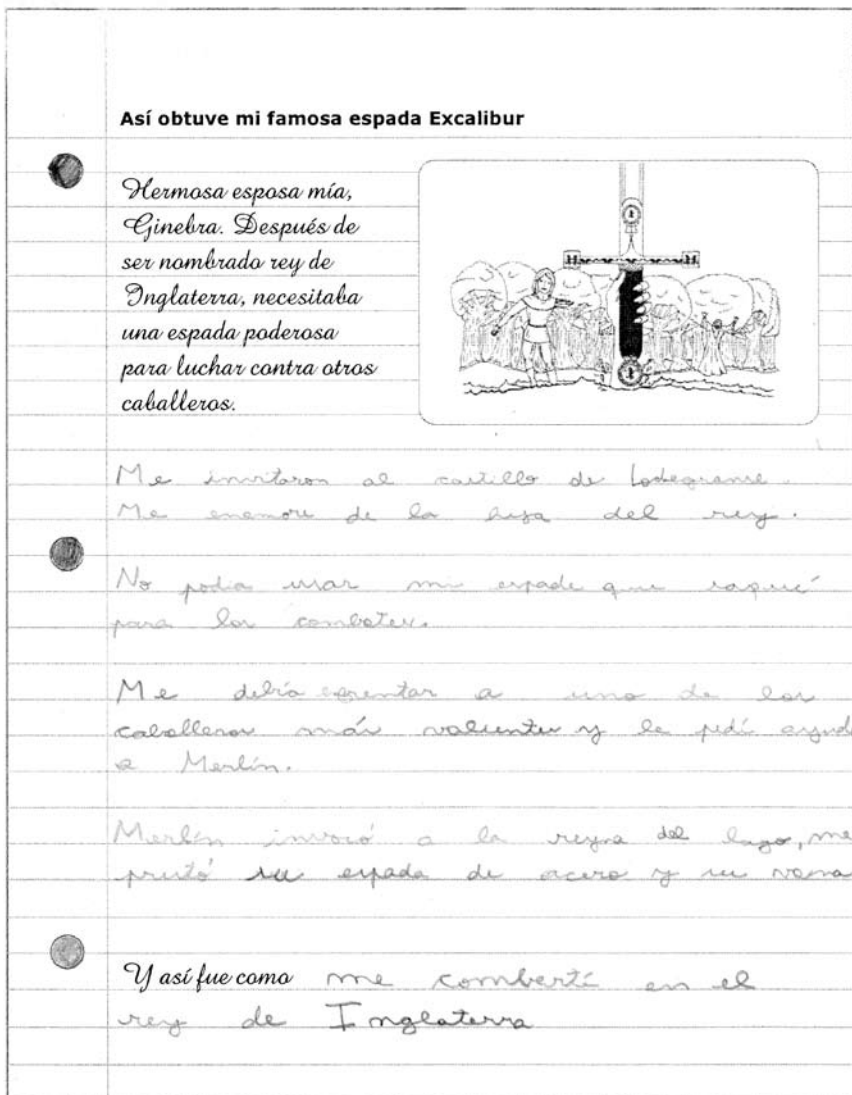 Así obtuve mi famosa espada Excalibur
Hermosa esposa mía,
Ginebra. Después de
ser nombrado rey de
Inglaterra, necesitaba
una espada poderosa
para luchar contra otros
caballeros.
Me invitaron al castillo de
Me enamore de la hija del rey.
No podia usar mi espade que saqué
para los combates.
Me debía a uno de los
caballeros más valientes y le pedí ayuda
a Merlín.
Merlín invocó a la reyna del lago, me
prestó su espada de acero y su vaina
Y así fue como me combertí en el
rey de Inglaterra